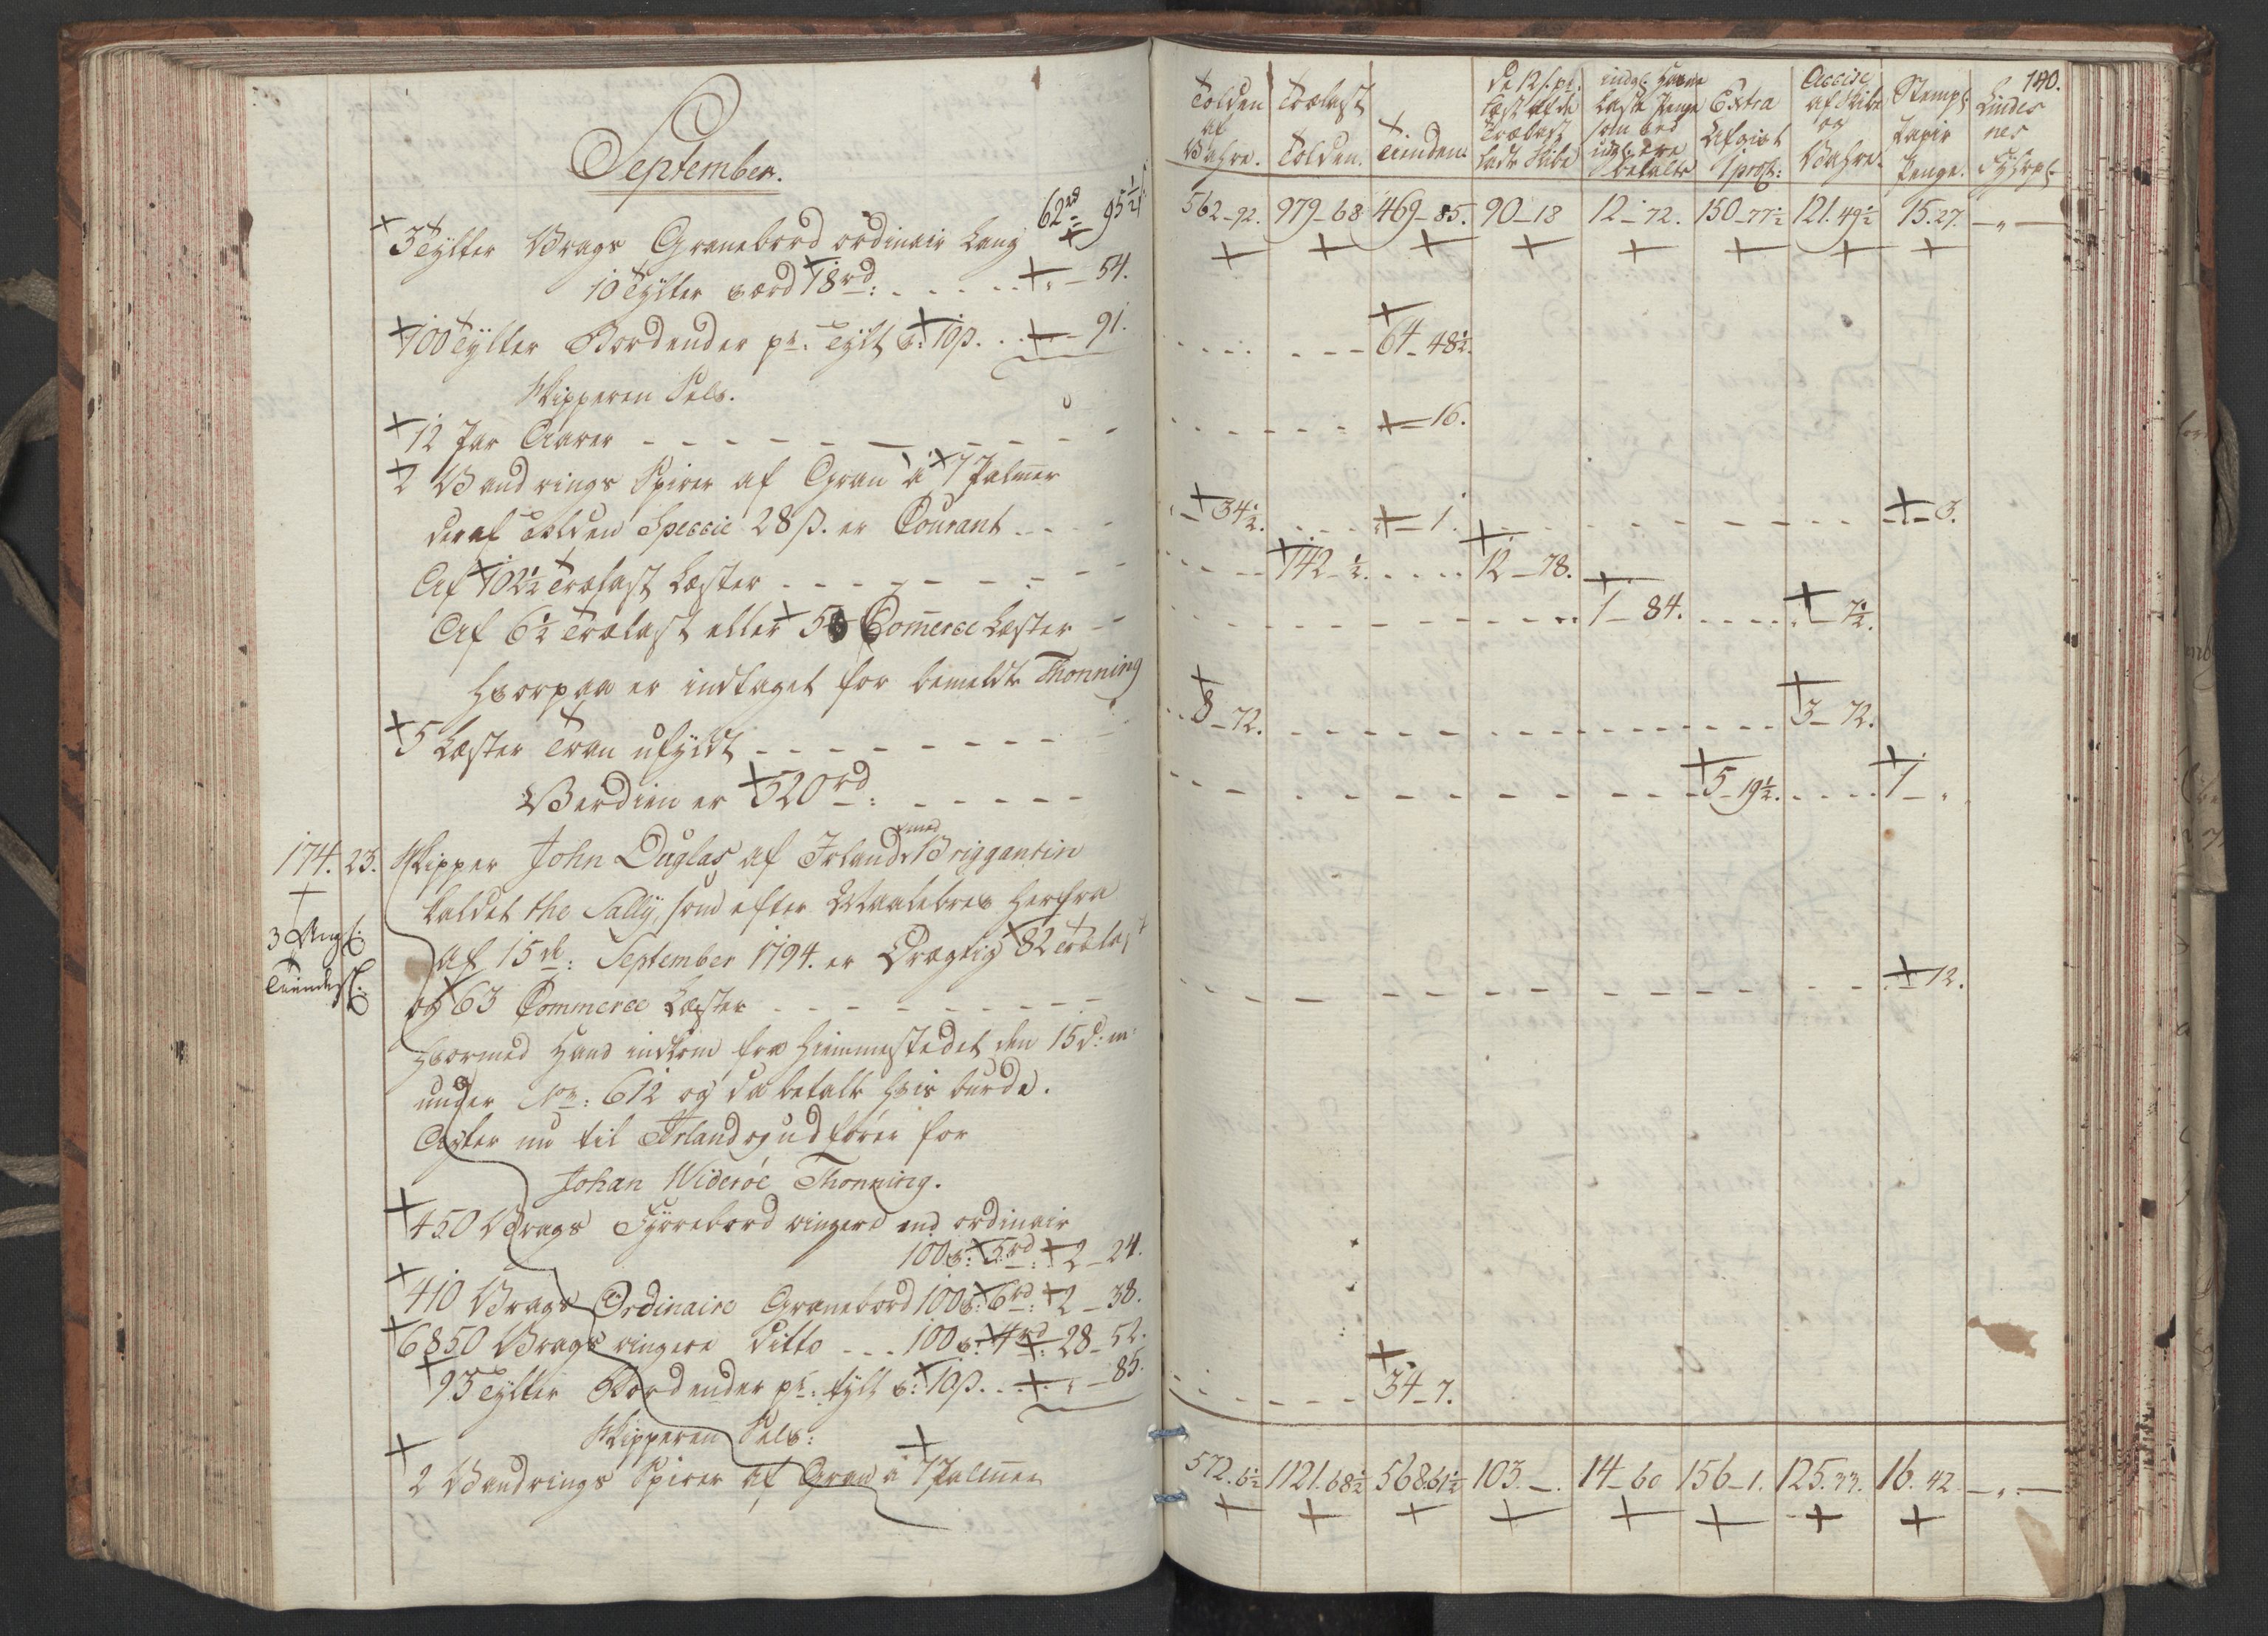 September.
62 rd 95 1/2 s
3 Tylter Vrags Granebord ordinair Lang
10 Tylter værd 18 rd: - - - " - 54.
100 Tylter Bordender pr. Tylt v: 10 s. . . " - 91.
Skipperen Selv.
12 Par Aarer - - - - - - - - -
2 Vandrings Spirer af Gran à 7 Palmer
deraf Tolden Speccie 28 s. er Courant - - -
Af 102 1/2 Trælast Læster - - - - - - -
Af 6 1/2 Trælast eller 5 Comerce Læster - -
hvorpaa er indtaget for bemeldte Thonning
5 Læster Tran ufyldt - - - - - - - -
Verdien er 520 rd: - - - - -
174. 23. Skipper John Duglas af Irland med Briggantin
kaldet the Sally, som efter Maalebrev herfra
3 Angl:
af 15de: September 1794. er Drægtig 82 Trælast
Tiende
og 63 Commerce Læster - - - - - - - -
hvormed Hand indkom fra Hiemmestedet den 15 d: m:
under No: 612 og da betalte hvis burde.
Agter nu til Irland og udfører for
Johan Widerøe Thonning.
450 Vrags Fyrrebord ringere end ordinair
100 v: 5 rd: 2 - 24.
410 Vrags Ordinaire Granebord 100 v: 6 rd: 2 - 38.
6850 Vrags ringere Ditto - - - 100 v: 4 rd: 28 - 52.
95 Tylter Bordender pr: tylt v: 10 s. . . " - 85.
Skipperen Selv:
2 Vandrings Spirer af Gran à 7 Palmer
140.
Tolden af Vahre. Trælast Tolden. Tiinden. de 12 s. pr: Læst af de Trælast ladte Skibe indgl: Havne Laste Penge som ved udgl: ere betalte Extra Afgivt 1 pro Ct: Accise af Skibe og Vahre. Stempl: Papir Penge. Lindesnes Fyhrpl:
562 - 92. 979 - 68 469 - 85. 90 - 18 12 - 72. 150 - 77 1/2 121. 49 1/2 15. 27. - " -
64 - 48 1/2.
" - 16.
" - 34 1/2. " - 1. " - 3.
142 - 1/2. 12 - 78.
1 - 84. " - 7 1/2.
8 - 72. 3 - 72.
5 - 19 1/2. 1 - "
" - 12.
34 - 7.
572. 6 1/2 1121. 68 1/2 568. 61 1/2 103. - . 14 - 60 156 - 1. 125. 33. 16. 42 - " -